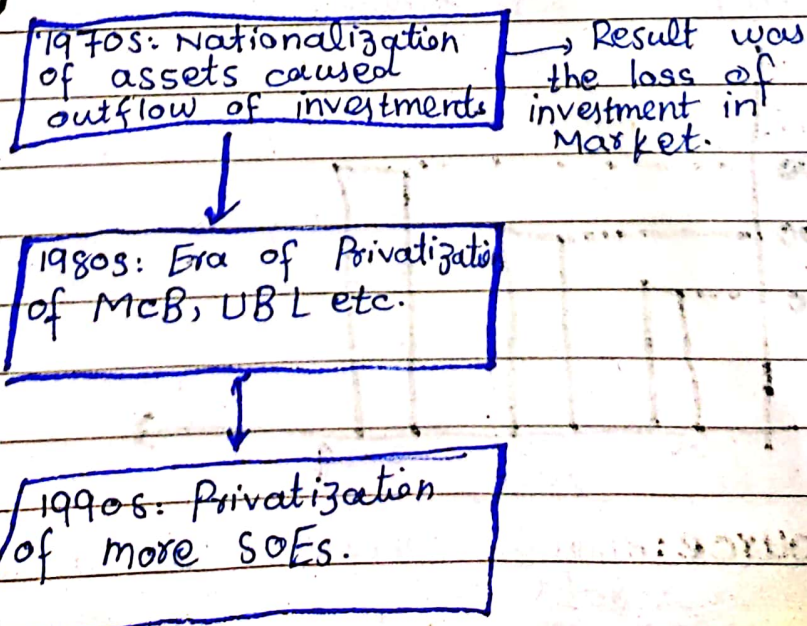 1970s: Nationalization
of assets caused
outflow of investments
→ Result was
the loss of
investment in
Market.
1980s: Era of Privatizatio
of MCB, UBL etc.
1990s: Privatization
of more SOEs.